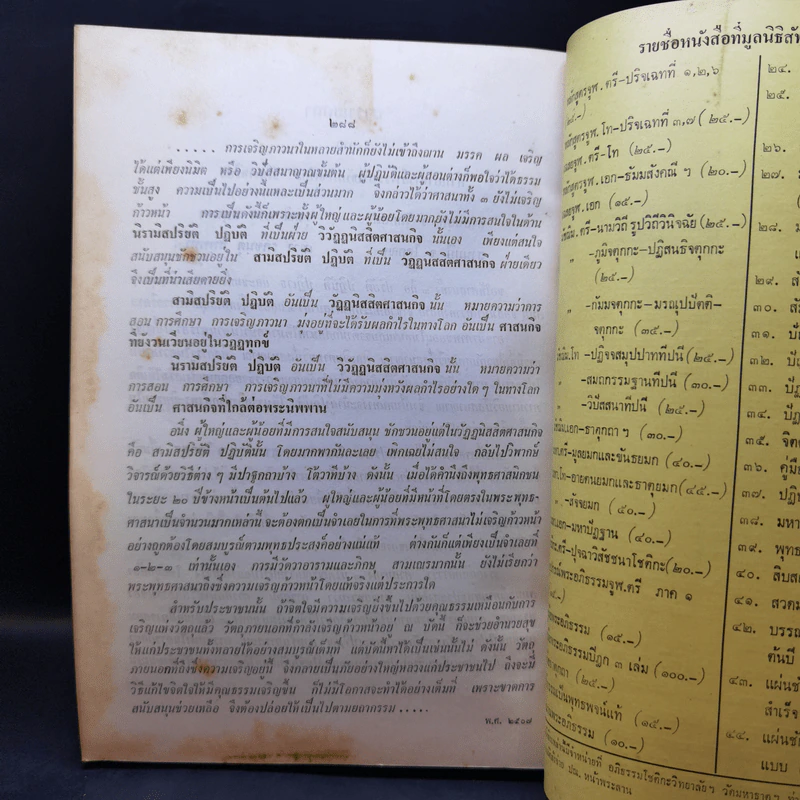 ๒๘๘
. . . . . การเจริญภาวนาในหลายสำนักก็ยังไม่เข้าถึงฌาน มรรค ผล เจริญ
ได้แต่เพียงนิมิต หรือ วิปัสสนาญาณขั้นต้น ผู้ปฏิบัติและผู้สอนต่างก็พอใจว่าได้ธรรม
ขั้นสูง ความเป็นไปอย่างนี้แหละเป็นส่วนมาก จึงกล่าวได้ว่าศาสนาทั้ง ๓ ยังไม่เจริญ
ก้าวหน้า การเป็นดังนี้ก็เพราะทั้งผู้ใหญ่ และผู้น้อยโดยมากมักยังไม่มีการสนใจในด้าน
นิรามิสปริยัติ ปฏิบัติ ที่เป็นฝ่าย วิวัฏฏนิสสิตศาสนกิจ นั้นเอง เพียงแต่สนใจ
สนับสนุนชักชวนอยู่ใน สามิสปริยัติ ปฏิบัติ ที่เป็น วัฏฏนิสสิตศาสนกิจ ฝ่ายเดียว
จึงเป็นที่น่าเสียดายยิ่ง
สามิสปริยัติ ปฏิบัติ อันเป็น วัฏฏนิสสิตศาสนกิจ นั้น หมายความว่าการ
สอน การศึกษา การเจริญภาวนา มุ่งอยู่ที่จะได้รับผลกำไรในทางโลก อันเป็น ศาสนกิจ
ที่ยังวนเวียนอยู่ในวัฏฏทุกข์
นิรามิสปริยัติ ปฏิบัติ อันเป็น วิวัฏฏนิสสิตศาสนกิจ นั้น หมายความว่า
การสอน การศึกษา การเจริญภาวนาที่ไม่มีความมุ่งหวังผลกำไรอย่างใด ๆ ในทางโลก
อันเป็น ศาสนกิจที่ใกล้ต่อพระนิพพาน
อนึ่ง ผู้ใหญ่และผู้น้อยที่มีการสนใจสนับสนุน ชักชวนอยู่แต่ในวัฏฏนิสสิตศาสนกิจ
คือ สามิสปริยัติ ปฏิบัตินั้น โดยมากพากันละเลย เพิกเฉยไม่สนใจ กลับไปวิพากษ์
วิจารณ์ด้วยวิธีต่าง ๆ มีปาฐกถาบ้าง โต้วาทีบ้าง ดังนั้น เมื่อได้คำนึงถึงพุทธศาสนิกชน
ในระยะ ๒๐ ปีข้างหน้าเป็นต้นไปแล้ว ผู้ใหญ่และผู้น้อยที่มีหน้าที่โดยตรงในพระพุทธ-
ศาสนาเป็นจำนวนมากเหล่านี้ จะต้องตกเป็นจำเลยในการที่พระพุทธศาสนาไม่เจริญก้าวหน้า
อย่างถูกต้องโดยสมบูรณ์ตามพุทธประสงค์อย่างแน่แท้ ต่างกันก็แต่เพียงเป็นจำเลยที่
๑-๒-๓ เท่านั้นเอง การมีวัดวาอารามและภิกษุ สามเณรมากนั้น ยังไม่เรียกว่า
พระพุทธศาสนาถึงซึ่งความเจริญก้าวหน้าโดยแท้จริงแต่ประการใด
สำหรับประชาชนนั้น ถ้าจิตใจมีความเจริญยิ่งขึ้นไปด้วยคุณธรรมเหมือนกับการ
เจริญแห่งวัตถุแล้ว วัตถุภายนอกที่กำลังเจริญก้าวหน้าอยู่ ณ บัดนี้ ก็จะช่วยอำนวยสุข
ให้แก่ประชาชนทั้งหลายได้อย่างสมบูรณ์เต็มที่ แต่บัดนี้หาได้เป็นเช่นนั้นไม่ ดังนั้น วัตถุ
ภายนอกที่ถึงซึ่งความเจริญอยู่นี้ จึงกลายเป็นภัยอย่างใหญ่หลวงแก่ประชาชนไป ถึงจะมี
วิธีแก้ไขจิตใจให้มีคุณธรรมเจริญขึ้น ก็ไม่มีโอกาสจะทำได้อย่างเต็มที่ เพราะขาดการ
สนับสนุนช่วยเหลือ จึงต้องปล่อยให้เป็นไปตามยถากรรม . . . . .
พ.ศ. ๒๕๑๗
รายชื่อหนังสือที่มูลนิธิ
หลักสูตรจูฬ.ตรี-ปริจเฉทที่ ๑,๒,๖
หลักสูตรจูฬ.โท-ปริจเฉทที่ ๓,๗ (๒๕.-)
จูฬ.ตรี-โท (๒๕.-)
หลักสูตรจูฬ.เอก-ธัมมสังคณี ฯ (๒๐.-)
จูฬ.เอก (๑๕.-)
ตรี-นามวิถี รูปวิถีวินิจฉัย (๒๕.-)
„ -ภูมิจตุกกะ-ปฏิสนธิจตุกกะ
(๒๕.-)
„ -กัมมจตุกกะ-มรณุปปัตติ-
จตุกกะ (๓๕.-)
โท -ปฏิจจสมุปปาททีปนี (๒๕.-)
„ -สมถกรรมฐานทีปนี (๓๐.-)
„ -วิปัสสนาทีปนี (๒๕.-)
เอก-ธาตุกถา ฯ (๓๐.-)
ตรี-มูลยมกและขันธยมก (๔๐.-)
โท-อายตนยมกและธาตุยมก (๔๕.-)
„ -สัจจยมก (๕๐.-)
เอก-มหาปัฏฐาน (๔๐.-)
ตรี-ปุจฉาวิสัชชนาโชติกะ (๒๐.-)
พระอภิธรรมจูฬ.ตรี ภาค ๑
พระอภิธรรม (๑๕.-)
พระอภิธรรมปิฎก ๓ เล่ม (๑๐๐.-)
(๒๕.-)
เป็นพุทธพจน์แท้ (๑๕.-)
พระอภิธรรม (๑๐.-)
มีจำหน่ายที่ อภิธรรมโชติกะวิทยาลัยฯ วัดมหาธาตุฯ
ปณ. หน้าพระลาน
๒๔.
๒๕.
๒๖.
๒๗.
๒๘.
๒๙.
๓๐.
๓๑.
๓๒.
๓๓.
๓๔.
๓๕. จิต
๓๖. คู่มือ
๓๗. ปฏิ
๓๘. มหา
๓๙. พุทธ
๔๐. สิบส
๔๑. สวดม
๔๒. บรรณ
ต้นบี
๔๓. แผ่นช
สำเร็จ
๔๔. แผ่นช
แบบ